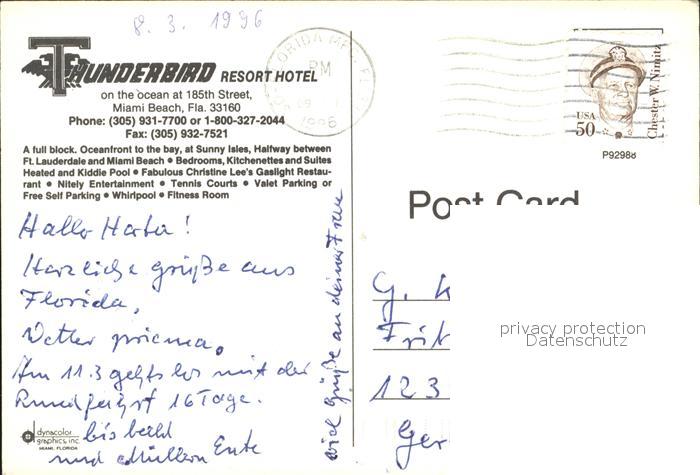 8. 3. 1996
THUNDERBIRD RESORT HOTEL
on the ocean at 185th Street,
Miami Beach, Fla. 33160
Phone: (305) 931-7700 or 1-800-327-2044
Fax: (305) 932-7521
A full block. Oceanfront to the bay, at Sunny Isles, Halfway between
Ft. Lauderdale and Miami Beach • Bedrooms, Kitchenettes and Suites
Heated and Kiddie Pool • Fabulous Christine Lee's Gaslight Restau-
rant • Nitely Entertainment • Tennis Courts • Valet Parking or
Free Self Parking • Whirlpool • Fitness Room
Hallo
Herzliche grüße aus
Florida,
Wetter prima.
Am 11.3 gehts los mit der
Rundfahrt 16 Tage.
bis bald
und
viel Grüße an deine Frau
dynacolor
graphics, inc.
MIAMI, FLORIDA
FLORIDA
PM
1996
USA
50
Chester W. Nimitz
P92988
Post Card
G.
123
Ger
privacy protection
Datenschutz